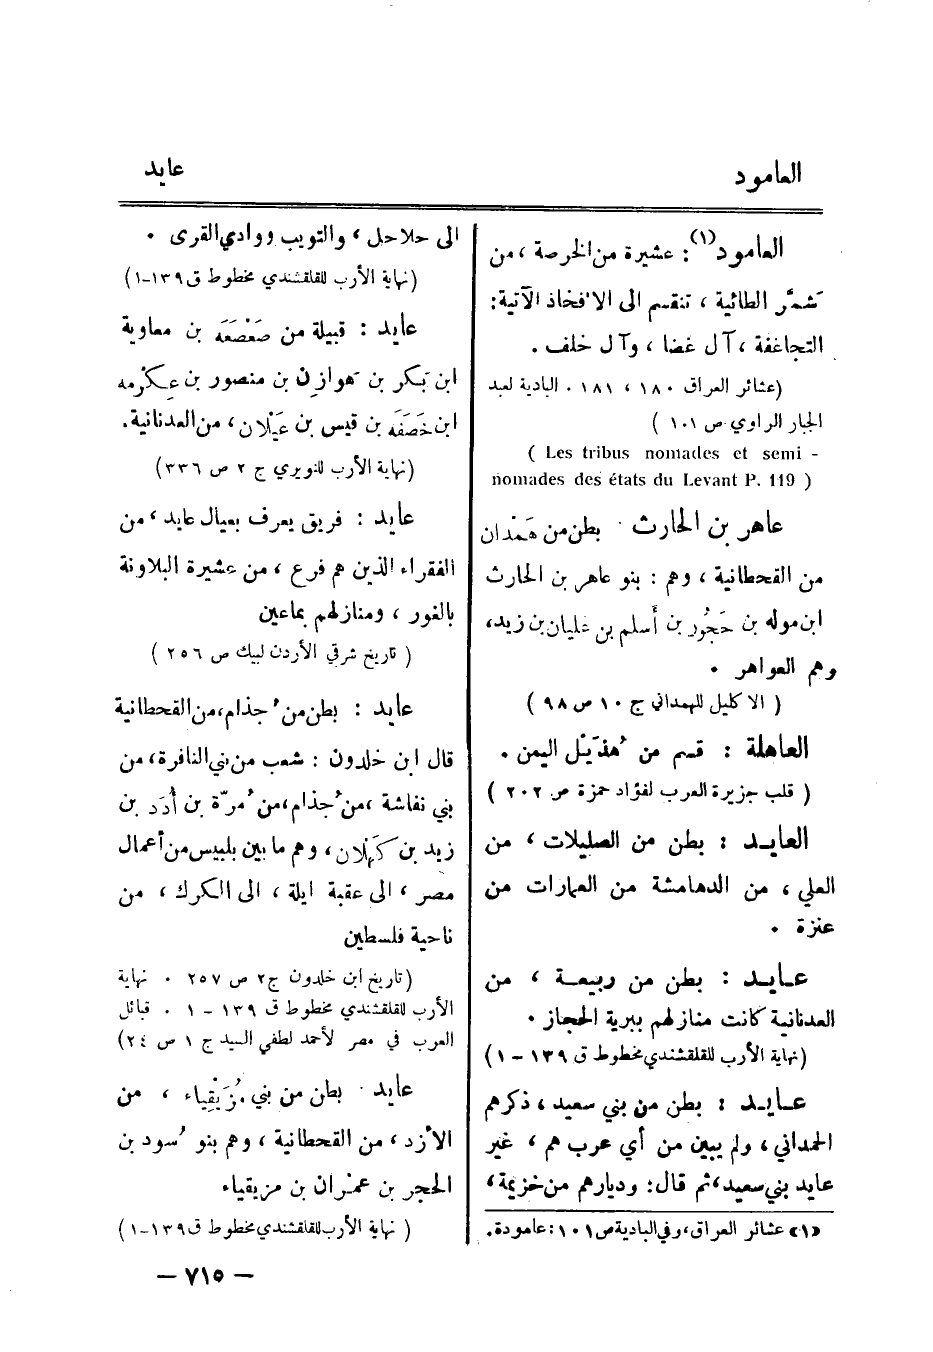 العامود
عايد
العامود(١): عشيرة من الخرصة ، من
شمَّر الطائية ، تنقسم الى الافخاذ الآتية:
التجاغفة ، آل غضا ، وآل خلف .
(عشائر العراق ١٨٠ ، ١٨١ . البادية لعبد
الجبار الراوي ص ١٠١ )
( Les tribus nomades et semi -
nomades des états du Levant P. 119 )
عاهر بن الحارث . بطن من هَمْدان
من القحطانية ، وهم : بنو عاهر بن الحارث
ابن موله بن حَجُور بن أسلم بن عليان بن زيد،
وهم العواهر .
( الاكليل للهمداني ج ١٠ ص ٩٨ )
العاهلة : قسم من هُذَيْل اليمن .
( قلب جزيرة العرب لفؤاد حمزة ص ٢٠٢ )
العايد : بطن من الصليلات ، من
العلي ، من الدهامشة من العمارات من
عنزة .
عايد : بطن من ربيعة ، من
العدنانية كانت منازلهم ببرية الحجاز .
(نهاية الأرب للقلقشندي مخطوط ق ١٣٩ – ١)
عايد : بطن من بني سعيد ، ذكرهم
الحمداني ، ولم يبين من أي عرب هم ، غير
عايد بني سعيد، ثم قال: وديارهم من خزيمة ،
«١» عشائر العراق، وفي البادية ص ١٠١: عامودة.
الى حلاحل ، والتويب ووادي القرى .
(نهاية الأرب للقلقشندي مخطوط ق ١٣٩-١)
عايد : قبيلة من صَعْصَعَه بن معاوية
ابن بَكر بن هَوازِن بن منصور بن عِكْرِمه
ابن خَصَفَه بن قيس بن عَيْلان ، من العدنانية.
(نهاية الأرب للنويري ج ٢ ص ٣٣٦)
عايد : فريق يعرف بعيال عايد ، من
الفقراء الذين هم فرع ، من عشيرة البلاونة
بالغور ، ومنازلهم بماعين
( تاريخ شرقي الأردن لبيك ص ٢٥٦ )
عايد : بطن من جُذام، من القحطانية
قال ابن خلدون : شعب من بني النافرة، من
بني نفاثة ، من جُذام، من مُرّة بن أُدَد بن
زيد بن كَهْلان ، وهم ما بين بلبيس من أعمال
مصر ، الى عقبة ايلة ، الى الكرك ، من
ناحية فلسطين
(تاريخ ابن خلدون ج٢ ص ٢٥٧ . نهاية
الأرب للقلقشندي مخطوط ق ١٣٩ – ١ . قبائل
العرب في مصر لأحمد لطفي السيد ج ١ ص ٢٤)
عايد . بطن من بني مُزَيْقِياء ، من
الأزد ، من القحطانية ، وهم بنو سُود بن
الحجر بن عمْران بن مزيقياء
( نهاية الأرب للقلقشندي مخطوط ق ١٣٩-١)
– ٧١٥ –